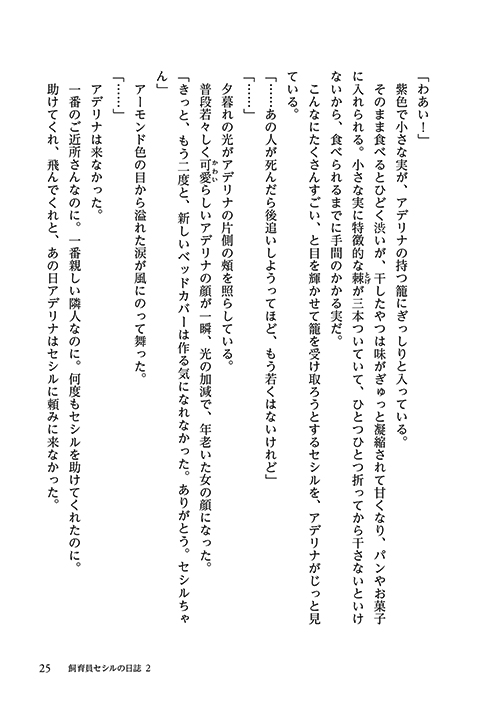 「わあい！」
　紫色で小さな実が、アデリナの持つ籠にぎっしりと入っている。
　そのまま食べるとひどく渋いが、干したやつは味がぎゅっと凝縮されて甘くなり、パンやお菓子
に入れられる。小さな実に特徴的な棘が三本ついていて、ひとつひとつ折ってから干さないといけ
ないから、食べられるまでに手間のかかる実だ。
　こんなにたくさんすごい、と目を輝かせて籠を受け取ろうとするセシルを、アデリナがじっと見
ている。
「……あの人が死んだら後追いしようってほど、もう若くはないけれど」
「……」
　夕暮れの光がアデリナの片側の頰を照らしている。
　普段若々しく可愛らしいアデリナの顔が一瞬、光の加減で、年老いた女の顔になった。
「きっと、もう二度と、新しいベッドカバーは作る気になれなかった。ありがとう。セシルちゃ
ん」
　アーモンド色の目から溢れた涙が風にのって舞った。
「……」
　アデリナは来なかった。
　一番のご近所さんなのに。一番親しい隣人なのに。何度もセシルを助けてくれたのに。
　助けてくれ、飛んでくれと、あの日アデリナはセシルに頼みに来なかった。
とげ
かわい
25　飼育員セシルの日誌 2